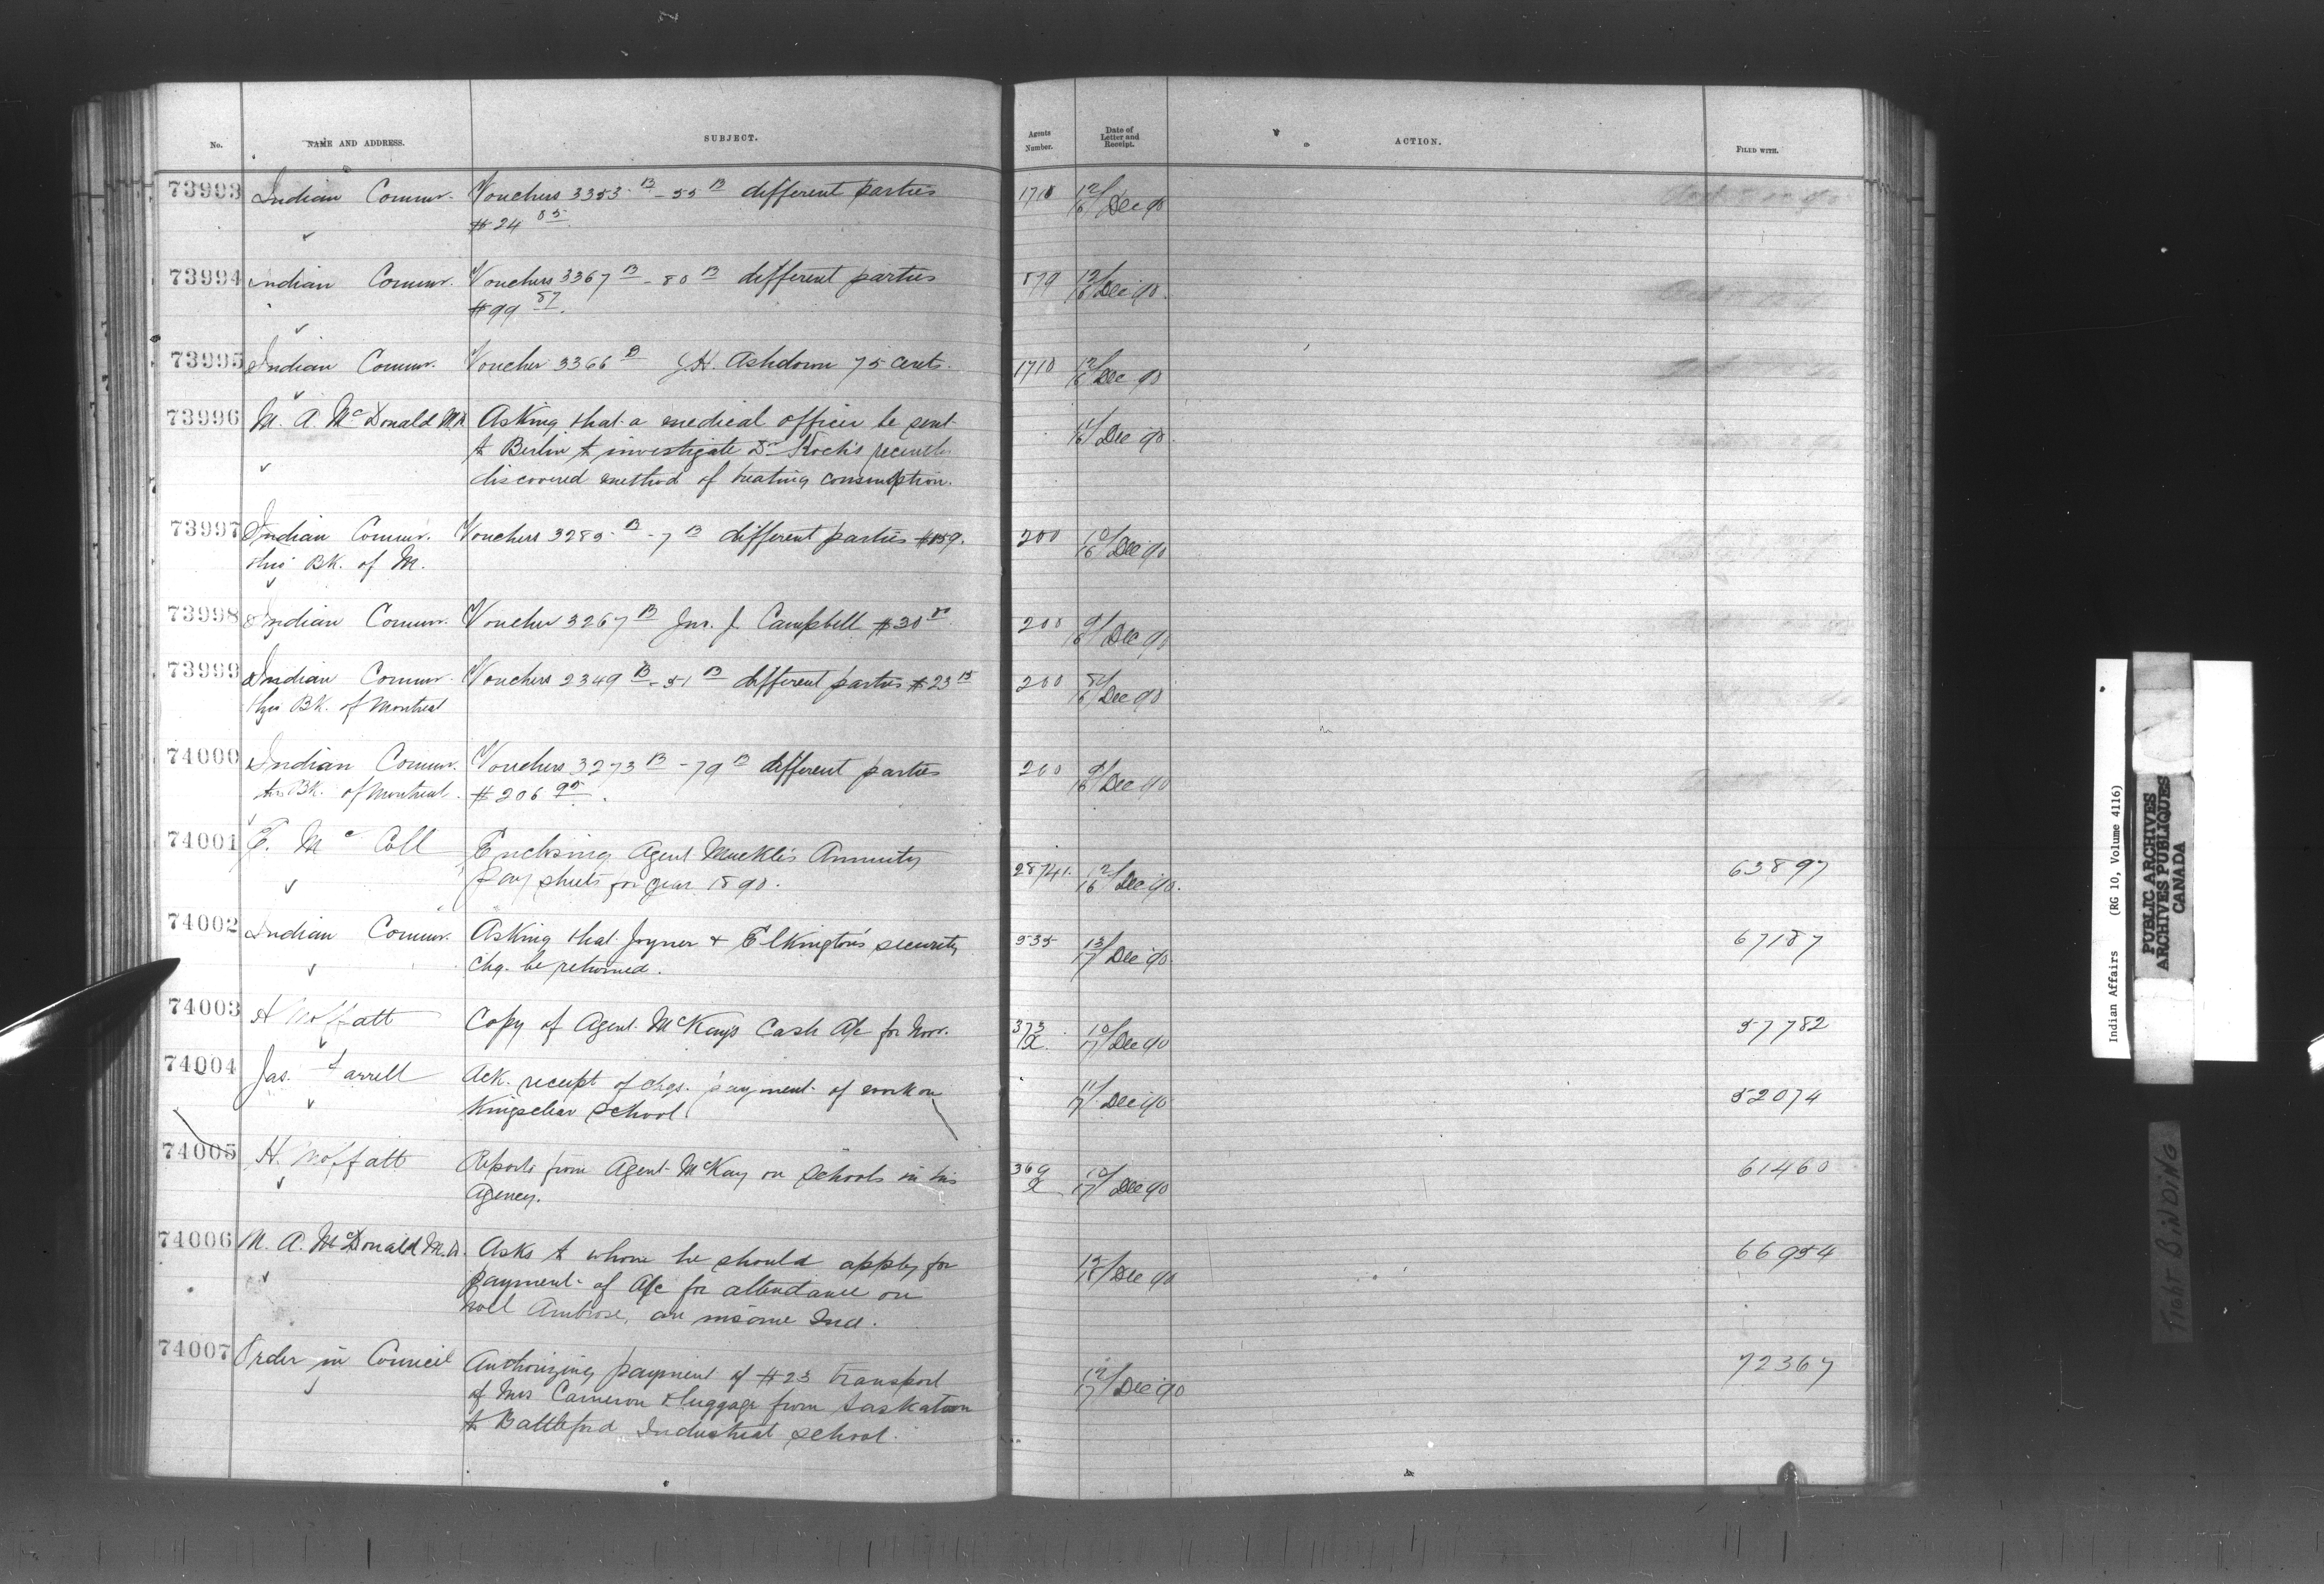 No. NAME AND ADDRESS. SUBJECT. Agents Number. Date of Letter and Receipt. ACTION. FILED WITH.
73993 Indian Commr. Vouchers 3353 B - 55 B different parties 1710 12/16 Dec 90
$24 85
73994 Indian Commr. Vouchers 3367 B - 80 B different parties 879 12/16 Dec 90.
$99 87.
73995 Indian Commr. Voucher 3366 B J.H. Ashdown 75 cents. 1710 12/16 Dec 90
73996 M. A. McDonald M.D. Asking that a medical officer be sent 11/16 Dec 90.
to Berlin to investigate Dr Koch's recently
discovered method of treating consumption.
73997 Indian Commr. Vouchers 3285 B - 7 B different parties $159. 200 10/16 Dec 90
thro BK. of M.
73998 Indian Commr. Voucher 3267 B Jno. J. Campbell $30 00 200 9/16 Dec 90
73999 Indian Commr. Vouchers 2349 B - 51 B different parties $23 15 200 8/16 Dec 90
thro BK. of Montreal
74000 Indian Commr. Vouchers 3273 B - 79 B different parties 200 9/16 Dec 90
thro BK. of Montreal. $206 95.
74001 E. McColl Enclosing Agent Muckle's Annuity
pay sheets for year 1890. 28741. 12/16 Dec 90. 63897
74002 Indian Commr. Asking that Joyner & Elkington's security 535 13/17 Dec 90. 67187
chq. be returned.
74003 A Moffatt Copy of Agent McKay's Cash A/c for Novr. 373/X. 10/17 Dec 90 57782
74004 Jas. Farrell Ack. receipt of chqs. payment of work on 11/17 Dec 90 52074
Kingsclear School.
74005 H. Moffatt Reports from Agent McKay on schools in his 369/X 10/17 Dec 90 61460
Agency.
74006 M. A. McDonald M.D. Asks to whom he should apply for 66954
payment of A/c for attendance on Dec 90
Noel Ambrose, an insane Ind.
74007 Order in Council Authorizing payment of $23 transport 12/17 Dec 90 72367
of Mrs Cameron & luggage from Saskatoon
to Battleford Industrial School.
Indian Affairs (RG 10, Volume 4116)
PUBLIC ARCHIVES
ARCHIVES PUBLIQUES
CANADA
TIGHT BINDING